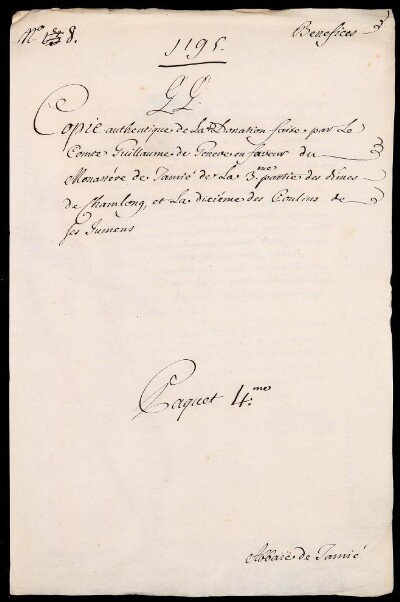 Nº 8.
Benefices
1195.
G G.
Copie authentique de La Donation faite par Le
Comte Guillaume de Geneve en faveur du
Monastére de Tamié de La 3.me partie des dimes
de Chamlong, et La dixiéme des Poulins de
ses Jumens
Paquet 4.me
Abbaïe de Tamié